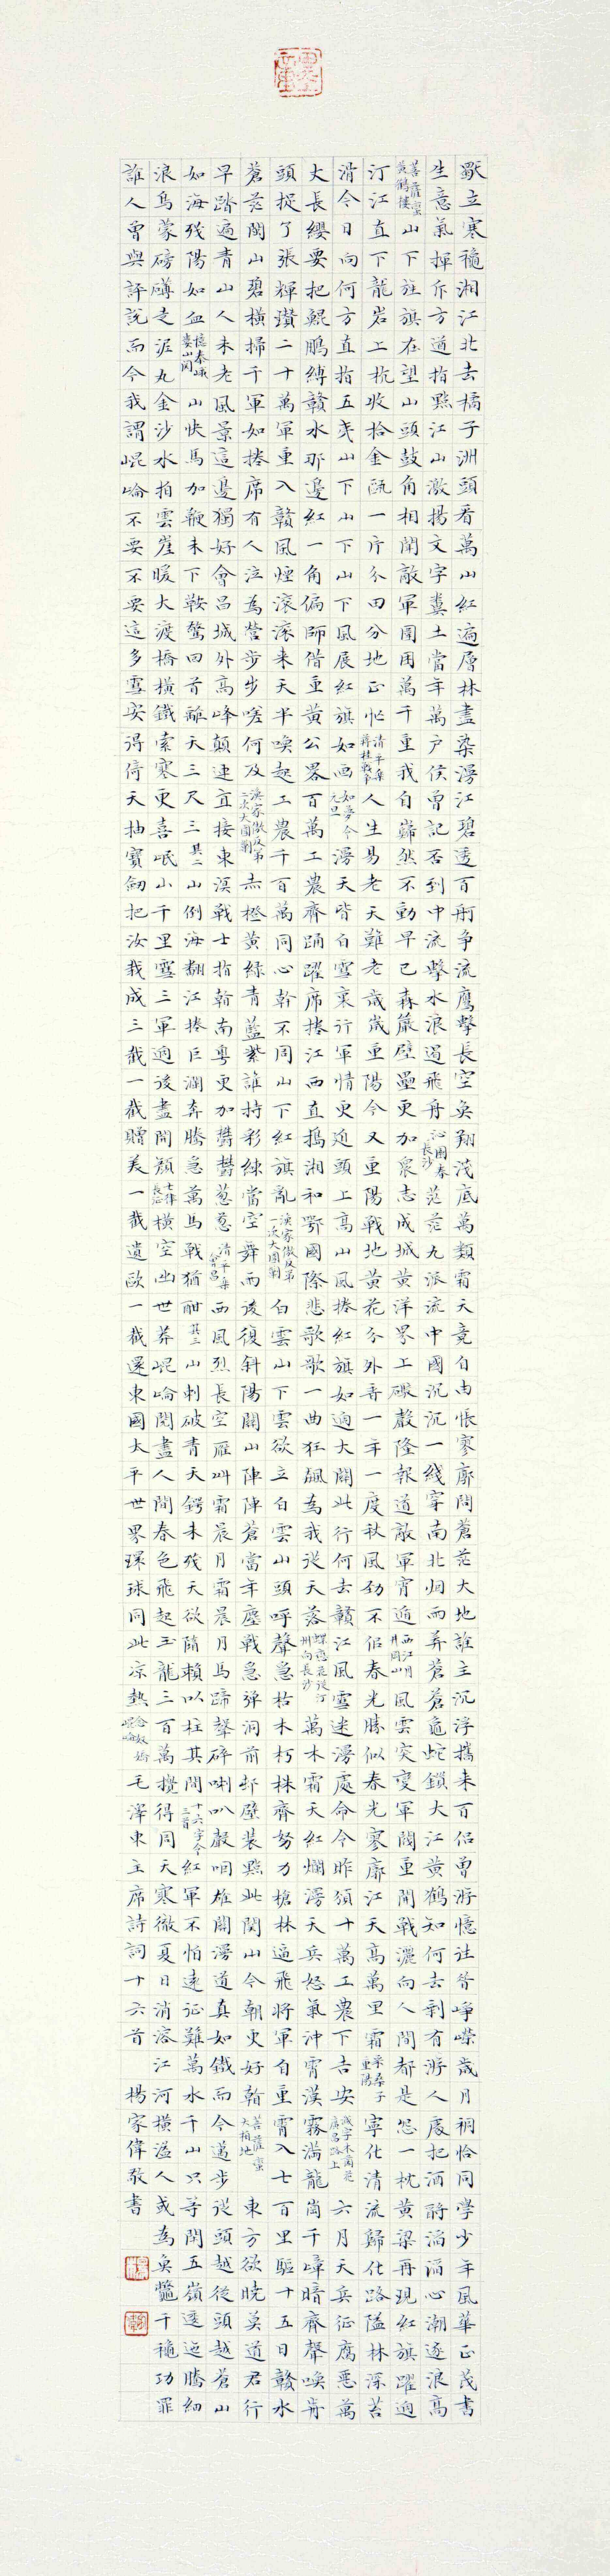 獨立寒穐湘江北去橘子洲頭看萬山紅遍層林盡染漫江碧透百舸爭流鷹擊長空魚翔淺底萬類霜天竟自由悵寥廓問蒼茫大地誰主沉浮攜來百侶曾游憶往昔崢嶸歲月稠恰同學少年風華正茂書
生意氣揮斥方遒指點江山激揚文字糞土當年萬户侯曾記否到中流擊水浪遏飛舟沁園春長沙茫茫九派流中國沉沉一綫穿南北烟雨莽蒼蒼龜蛇鎖大江黃鶴知何去剩有游人處把酒酹滔滔心潮逐浪高
菩薩蠻黃鶴樓山下旌旗在望山頭鼓角相聞敵軍圍困萬千重我自巋然不動早已森嚴壁壘更加衆志成城黃洋界上礮聲隆報道敵軍宵遁西江月井岡山風雲突變軍閥重開戰灑向人間都是怨一枕黃粱再現紅旗躍過
汀江直下龍岩上杭收拾金甌一片分田分地正忙清平樂蔣桂戰爭人生易老天難老歲歲重陽今又重陽戰地黃花分外香一年一度秋風勁不似春光勝似春光寥廓江天高萬里霜采桑子重陽寧化清流歸化路隘林深苔
滑今日向何方直指武夷山下山下山下風展紅旗如画如夢令元旦漫天皆白雪裏行軍情更迫頭上高山風捲紅旗如過大關此行何去贛江風雪迷漫處命令昨頒十萬工農下吉安減字木蘭花廣昌路上六月天兵征腐惡萬
丈長纓要把鯤鵬縛贛水那邊紅一角偏師借重黃公畧百萬工農齊踊躍席捲江西直搗湘和鄂國際悲歌歌一曲狂飆為我從天落蝶戀花從汀州向長沙萬木霜天紅爛漫天兵怒氣沖霄漢霧滿龍岡千嶂暗齊聲喚前
頭捉了張輝瓚二十萬軍重入贛風煙滾滾來天半喚起工農千百萬同心幹不周山下紅旗亂漁家傲反第一次大圍剿白雲山下雲欲立白雲山頭呼聲急枯木朽株齊努力槍林逼飛將軍自重霄入七百里驅十五日贛水
蒼茫閩山碧橫掃千軍如捲席有人泣為營步步嗟何及漁家傲反第二次大圍剿赤橙黃綠青藍紫誰持彩練當空舞雨後復斜陽關山陣陣蒼當年鏖戰急彈洞前邨壁裝點此關山今朝更好看菩薩蠻大柏地東方欲曉莫道君行
早踏遍青山人未老風景這邊獨好會昌城外高峰顛連直接東溟戰士指看南粵更加鬱鬱蔥蔥清平樂會昌西風烈長空雁叫霜晨月霜晨月馬蹄聲碎喇叭聲咽雄關漫道真如鐵而今邁步從頭越從頭越蒼山
如海殘陽如血憶秦娥婁山關山快馬加鞭未下鞍驚回首離天三尺三其二山倒海翻江捲巨瀾奔騰急萬馬戰猶酣其三山刺破青天鍔未殘天欲墮賴以柱其間十六字令三首紅軍不怕遠征難萬水千山只等閒五嶺逶迤騰細
浪烏蒙磅礴走泥丸金沙水拍雲崖暖大渡橋橫鐵索寒更喜岷山千里雪三軍過後盡開顏七律長征橫空出世莽崐崘閱盡人間春色飛起玉龍三百萬攪得周天寒徹夏日消溶江河橫溢人或為魚鱉千穐功罪
誰人曾與評說而今我謂崐崘不要不要這多雪安得倚天抽寶劍把汝裁成三截一截贈美一截遺歐一截還東國太平世界環球同此涼熱念奴嬌崐崘毛澤東主席詩詞十六首楊家偉敬書